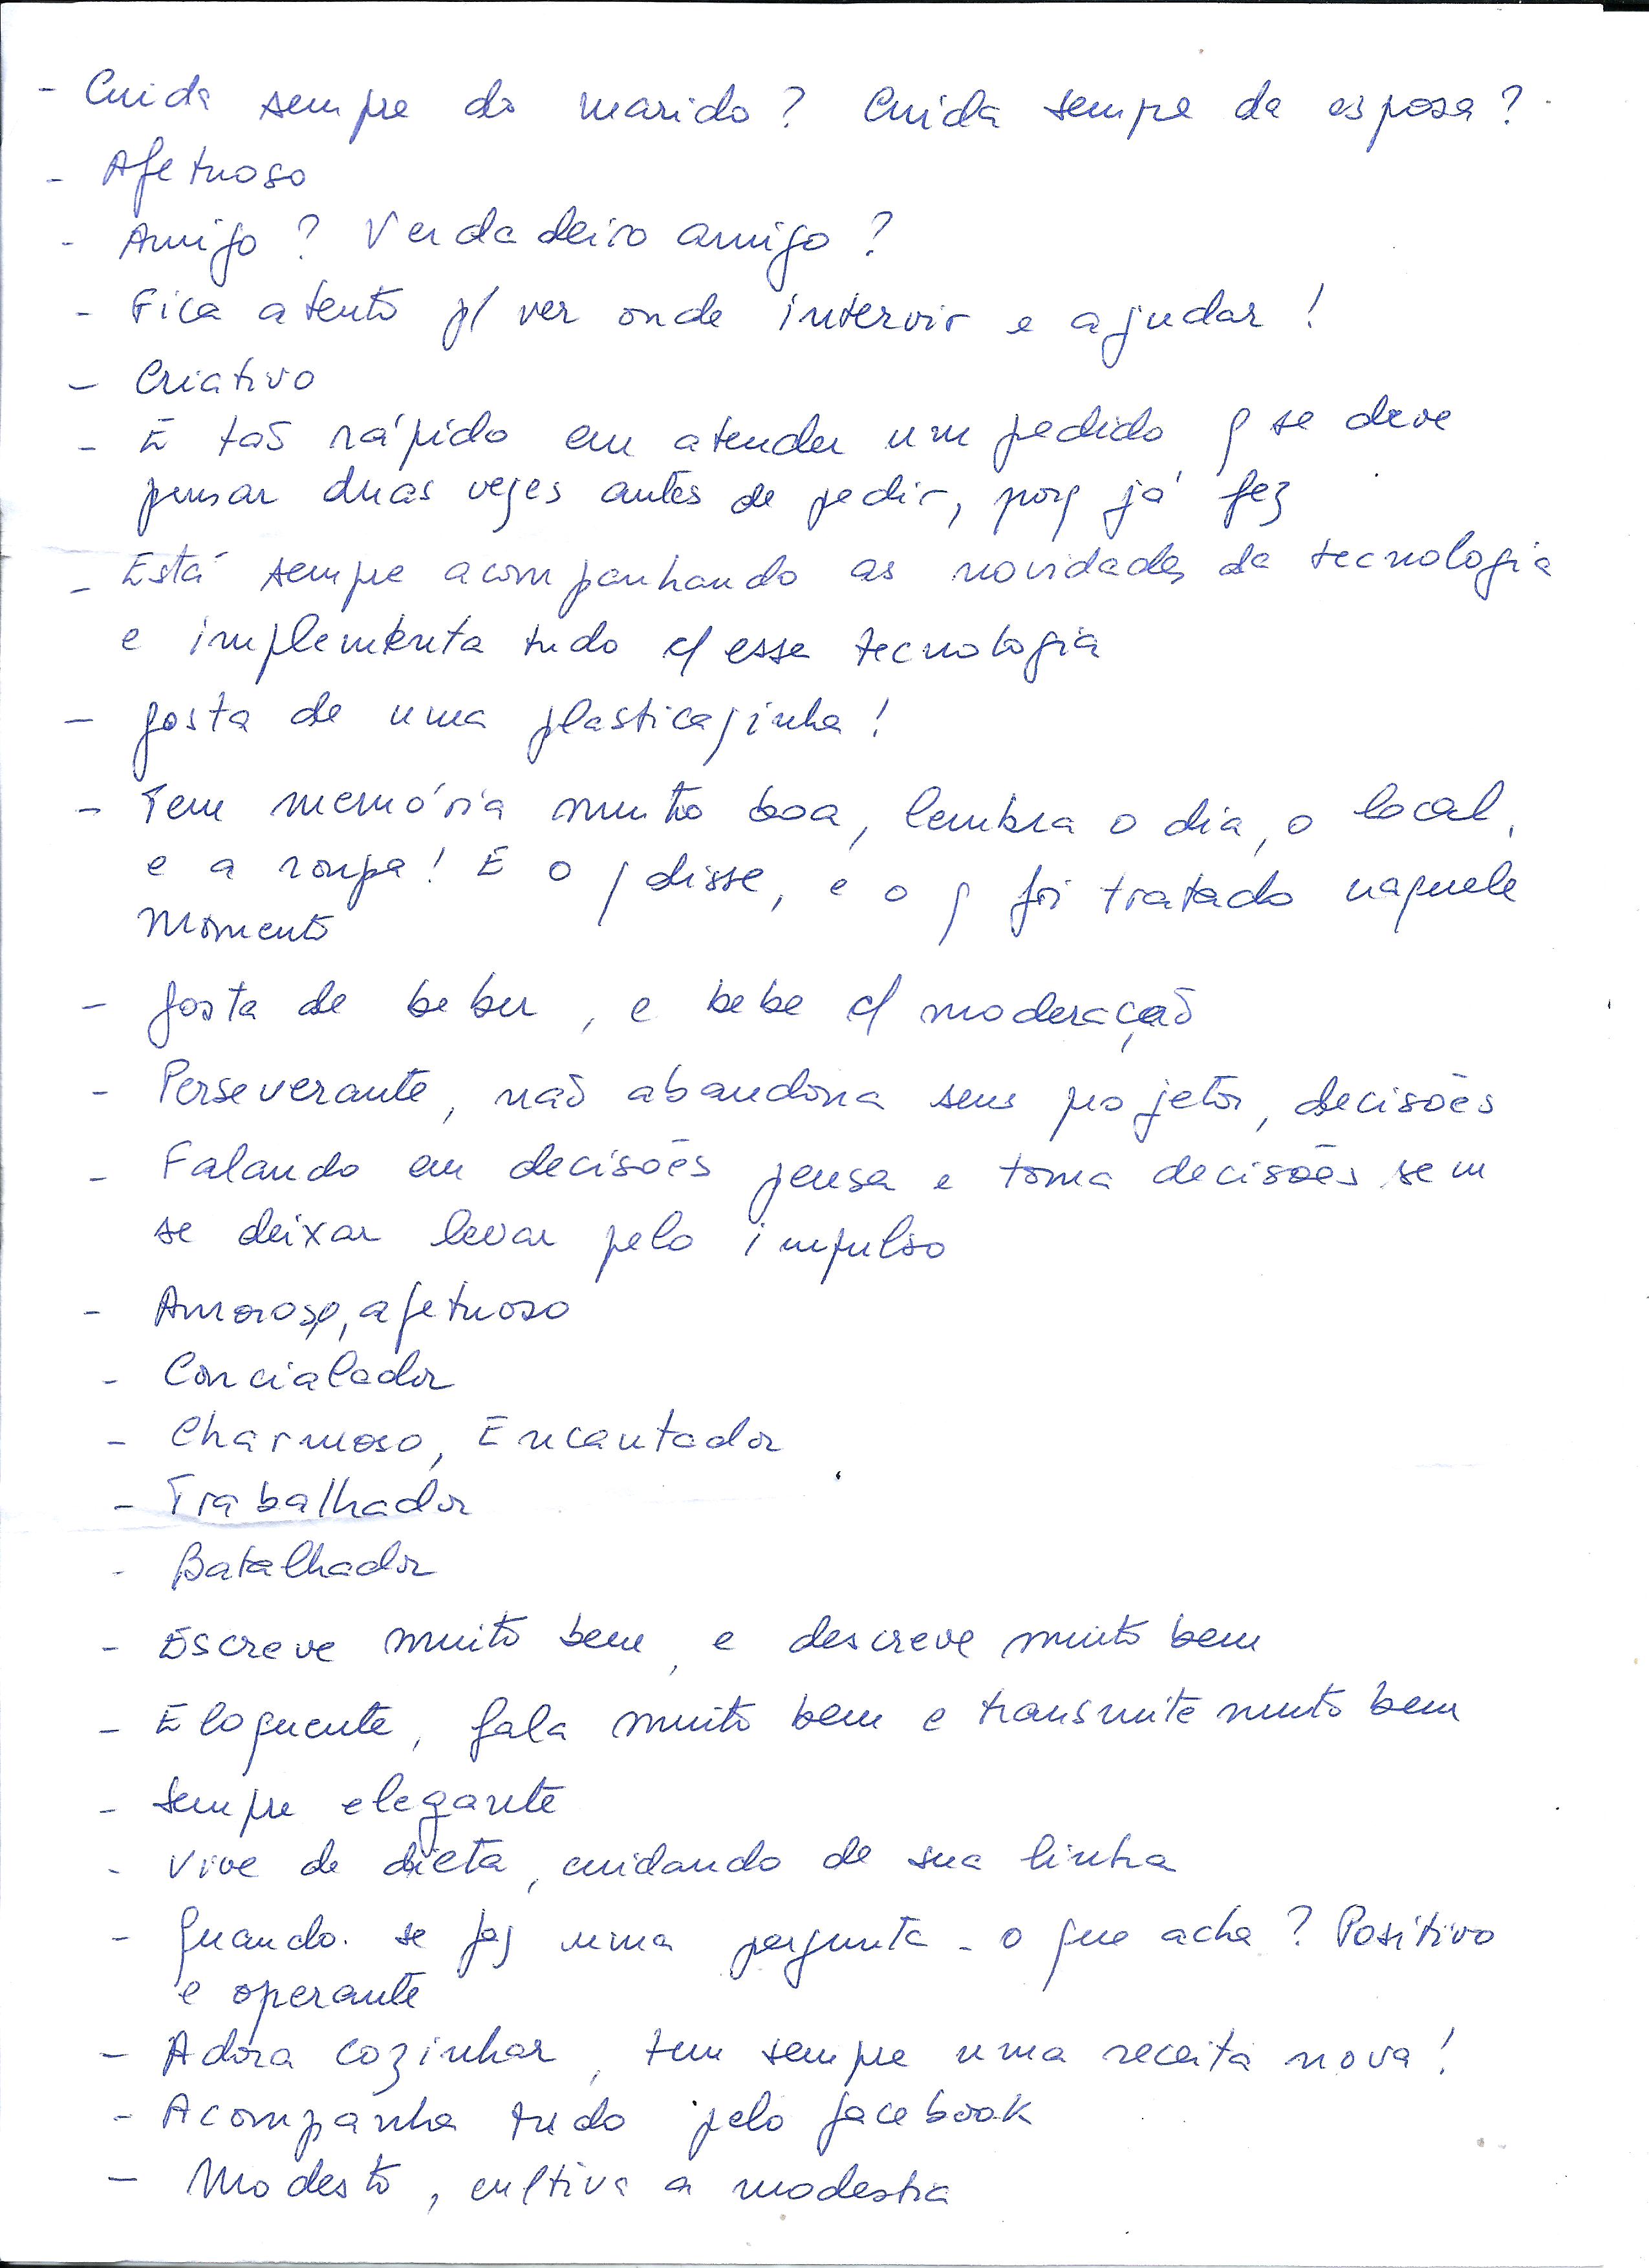 - Cuida sempre do marido? Cuida sempre da esposa?
- Afetuoso
- Amigo? Verdadeiro amigo?
- Fica atento p/ ver onde intervir e ajudar!
- Criativo
- É tão rápido em atender um pedido q se deve
pensar duas vezes antes de pedir, porq já fez
- Está sempre acompanhando as novidades da tecnologia
e implementa tudo c/ essa tecnologia
- gosta de uma plasticazinha!
- Tem memória muito boa, lembra o dia, o local,
e a roupa! E o q disse, e o q foi tratado naquele
momento
- gosta de beber, e bebe c/ moderação
- Perseverante, não abandona seus projetos, decisões
- Falando em decisões pensa e toma decisões sem
se deixar levar pelo impulso
- Amoroso, afetuoso
- Concialador
- Charmoso, Encantador
- Trabalhador
- Batalhador
- Escreve muito bem, e descreve muito bem
- Eloquente, fala muito bem e transmite muito bem
- sempre elegante
- Vive de dieta, cuidando de sua linha
- Quando se faz uma pergunta - o que acha? Positivo
e operante
- Adora cozinhar, tem sempre uma receita nova!
- Acompanha tudo pelo facebook
- Modesto, cultiva a modestia